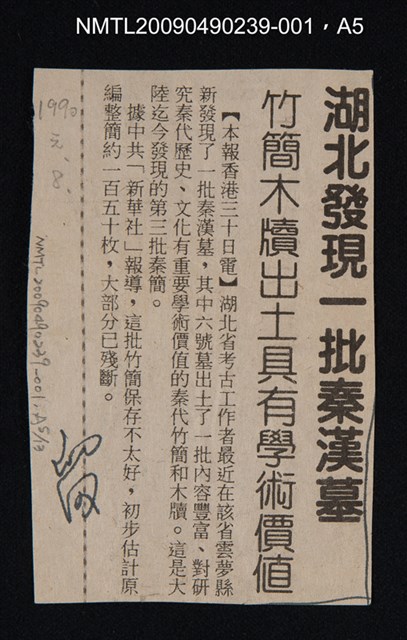 NMTL20090490239-001，A5
湖北發現一批秦漢墓
竹簡木牘出土具有學術價值
【本報香港三十日電】湖北省考古工作者最近在該省雲夢縣
新發現了一批秦漢墓，其中六號墓出土了一批內容豐富、對研
究秦代歷史、文化有重要學術價值的秦代竹簡和木牘。這是大
陸迄今發現的第三批秦簡。
據中共「新華社」報導，這批竹簡保存不太好，初步估計原
編整簡約一百五十枚，大部分已殘斷。
1990
元、8、
NMTL20090490239-001，A5/13